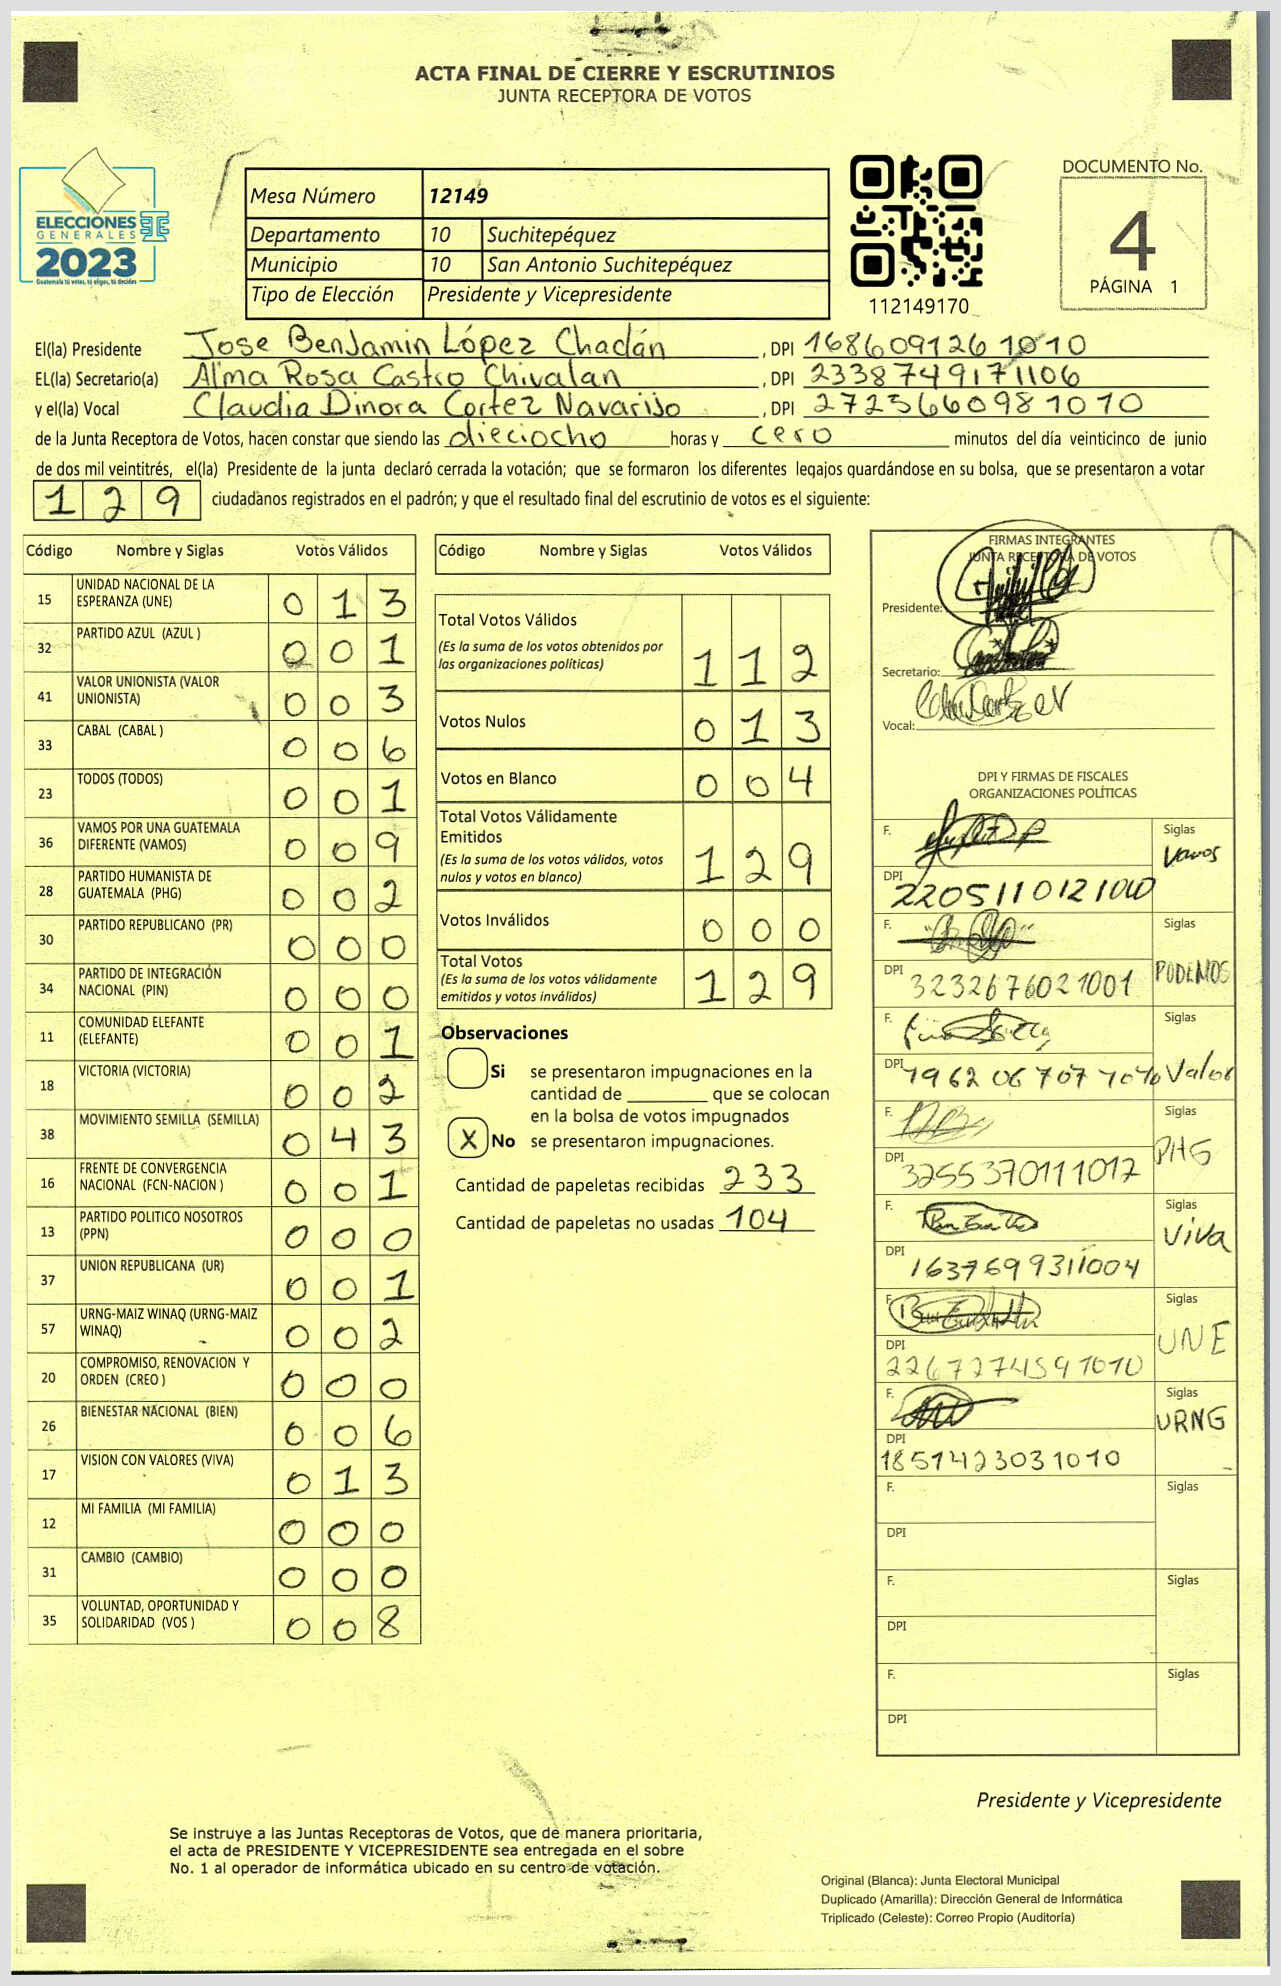 ACTA FINAL DE CIERRE Y ESCRUTINIOS
JUNTA RECEPTORA DE VOTOS
ELECCIONES
GENERALES
2023
Guatemala tú votas, tú eliges, tú decides
Mesa Número 12149
Departamento 10 Suchitepéquez
Municipio 10 San Antonio Suchitepéquez
Tipo de Elección Presidente y Vicepresidente
112149170
DOCUMENTO No.
4
PÁGINA 1
El(la) Presidente Jose Benjamin López Chadán, DPI 1686091261010
EL(la) Secretario(a) Alma Rosa Castro Chivalan, DPI 2338749171106
y el(la) Vocal Claudia Dinora Cortez Navarijo, DPI 2723660981010
de la Junta Receptora de Votos, hacen constar que siendo las dieciocho horas y cero minutos del día veinticinco de junio
de dos mil veintitrés, el(la) Presidente de la junta declaró cerrada la votación; que se formaron los diferentes legajos guardándose en su bolsa, que se presentaron a votar
129 ciudadanos registrados en el padrón; y que el resultado final del escrutinio de votos es el siguiente:
Código Nombre y Siglas Votos Válidos
15 UNIDAD NACIONAL DE LA ESPERANZA (UNE) 0 1 3
32 PARTIDO AZUL (AZUL ) 0 0 1
41 VALOR UNIONISTA (VALOR UNIONISTA) 0 0 3
33 CABAL (CABAL ) 0 0 6
23 TODOS (TODOS) 0 0 1
36 VAMOS POR UNA GUATEMALA DIFERENTE (VAMOS) 0 0 9
28 PARTIDO HUMANISTA DE GUATEMALA (PHG) 0 0 2
30 PARTIDO REPUBLICANO (PR) 0 0 0
34 PARTIDO DE INTEGRACIÓN NACIONAL (PIN) 0 0 0
11 COMUNIDAD ELEFANTE (ELEFANTE) 0 0 1
18 VICTORIA (VICTORIA) 0 0 2
38 MOVIMIENTO SEMILLA (SEMILLA) 0 4 3
16 FRENTE DE CONVERGENCIA NACIONAL (FCN-NACION ) 0 0 1
13 PARTIDO POLITICO NOSOTROS (PPN) 0 0 0
37 UNION REPUBLICANA (UR) 0 0 1
57 URNG-MAIZ WINAQ (URNG-MAIZ WINAQ) 0 0 2
20 COMPROMISO, RENOVACION Y ORDEN (CREO ) 0 0 0
26 BIENESTAR NACIONAL (BIEN) 0 0 6
17 VISION CON VALORES (VIVA) 0 1 3
12 MI FAMILIA (MI FAMILIA) 0 0 0
31 CAMBIO (CAMBIO) 0 0 0
35 VOLUNTAD, OPORTUNIDAD Y SOLIDARIDAD (VOS ) 0 0 8
Código Nombre y Siglas Votos Válidos
Total Votos Válidos
(Es la suma de los votos obtenidos por
las organizaciones políticas) 1 1 2
Votos Nulos 0 1 3
Votos en Blanco 0 0 4
Total Votos Válidamente
Emitidos
(Es la suma de los votos válidos, votos
nulos y votos en blanco) 1 2 9
Votos Inválidos 0 0 0
Total Votos
(Es la suma de los votos válidamente
emitidos y votos inválidos) 1 2 9
Observaciones
Si se presentaron impugnaciones en la
cantidad de ________ que se colocan
en la bolsa de votos impugnados
X No se presentaron impugnaciones.
Cantidad de papeletas recibidas 233
Cantidad de papeletas no usadas 104
FIRMAS INTEGRANTES
JUNTA RECEPTORA DE VOTOS
Presidente:
Secretario:
Vocal:
DPI Y FIRMAS DE FISCALES
ORGANIZACIONES POLÍTICAS
F. Siglas Vamos
DPI
F. Siglas PODEMOS
DPI 3232676021001
F. Siglas Valor
DPI
F. Siglas PHG
DPI 3255370111012
F. Siglas Viva
DPI 1637699311004
F. Siglas UNE
DPI 2267274591010
F. Siglas URNG
DPI 1851423031010
F. Siglas
DPI
F. Siglas
DPI
F. Siglas
DPI
Presidente y Vicepresidente
Se instruye a las Juntas Receptoras de Votos, que de manera prioritaria,
el acta de PRESIDENTE Y VICEPRESIDENTE sea entregada en el sobre
No. 1 al operador de informática ubicado en su centro de votación.
Original (Blanca): Junta Electoral Municipal
Duplicado (Amarilla): Dirección General de Informática
Triplicado (Celeste): Correo Propio (Auditoría)